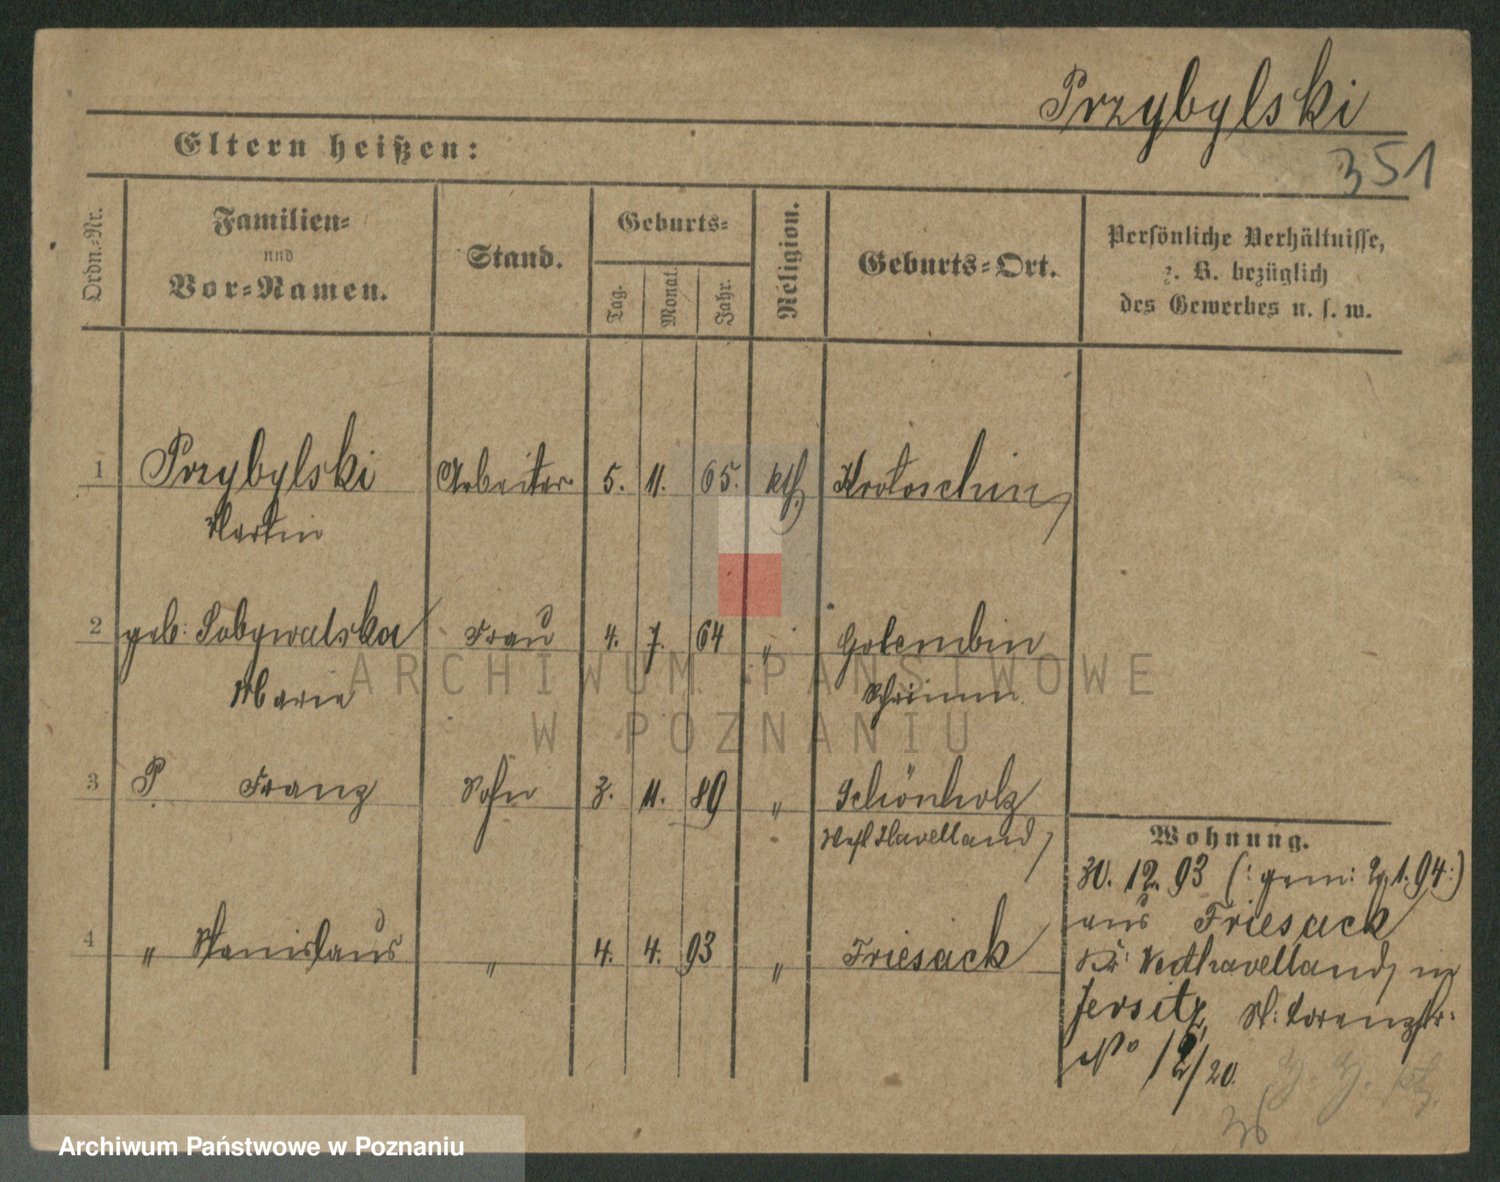 Przybylski
351
Eltern heißen:
Ordn.=Nr.
Familien=
und
Vor=Namen.
Stand.
Geburts=
Tag.
Monat.
Jahr.
Religion.
Geburts=Ort.
Persönliche Verhältnisse,
z. B. bezüglich
des Gewerbes u. s. w.
1 Przybylski Arbeiter 5. 11. 65. kth. Krotoschin
Martin
2 geb: Sobywalska Frau 4. 7. 64 " Golembin
Marie Schrimm
3 P. Franz Sohn 3. 11. 89 " Schönholz
Westhavelland
4 " Stanislaus " 4. 4. 93 " Friesack
Wohnung.
30. 12. 93 (: gem: 2/1. 94:)
aus Friesack
Kr: Westhavelland, in
Jersitz, St: Lorenzstr:
No 12/20.
36
ARCHIWUM PAŃSTWOWE
W POZNANIU
Archiwum Państwowe w Poznaniu